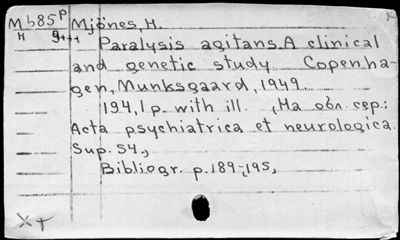 Mb85р Mjönes, H.
н 9+++
Paralysis agitans. A clinical
and genetic study Copenha-
gen, Munksgaard, 1949.
194, 1 p. with ill. (На обл. сер.:
Acta psychiatrica et neurologica.
Sup. 54.,
Bibliogr. p. 189-195,
x+